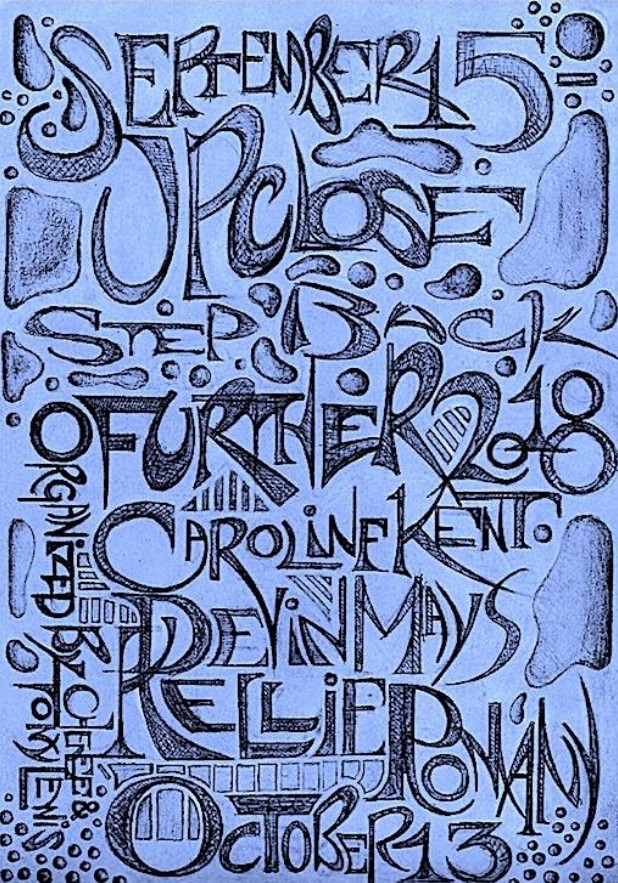 SEPTEMBER 15 –
UP CLOSE
STEP BACK
FURTHER 2018
CAROLINE KENT.
DEVIN MAYS
KELLIE ROMANY
OCTOBER 13
ORGANIZED BY &
TONY LEWIS